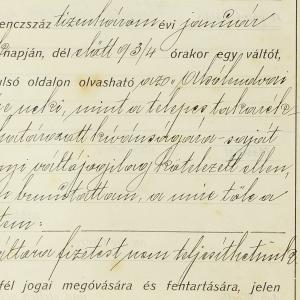 enczszáz tizenhárom évi január
napján, dél előtt 9 3/4 órakor egy váltót,
ulsó oldalon olvasható az
neki, mint a telepes takarék
határozott kívánságára - saját
nyi váltójogilag kötelezett ellen,
bemutattam, a mire tőle a
tem:
váltóra fizetést nem teljesíthetünk
fél jogai megóvására és fentartására, jelen